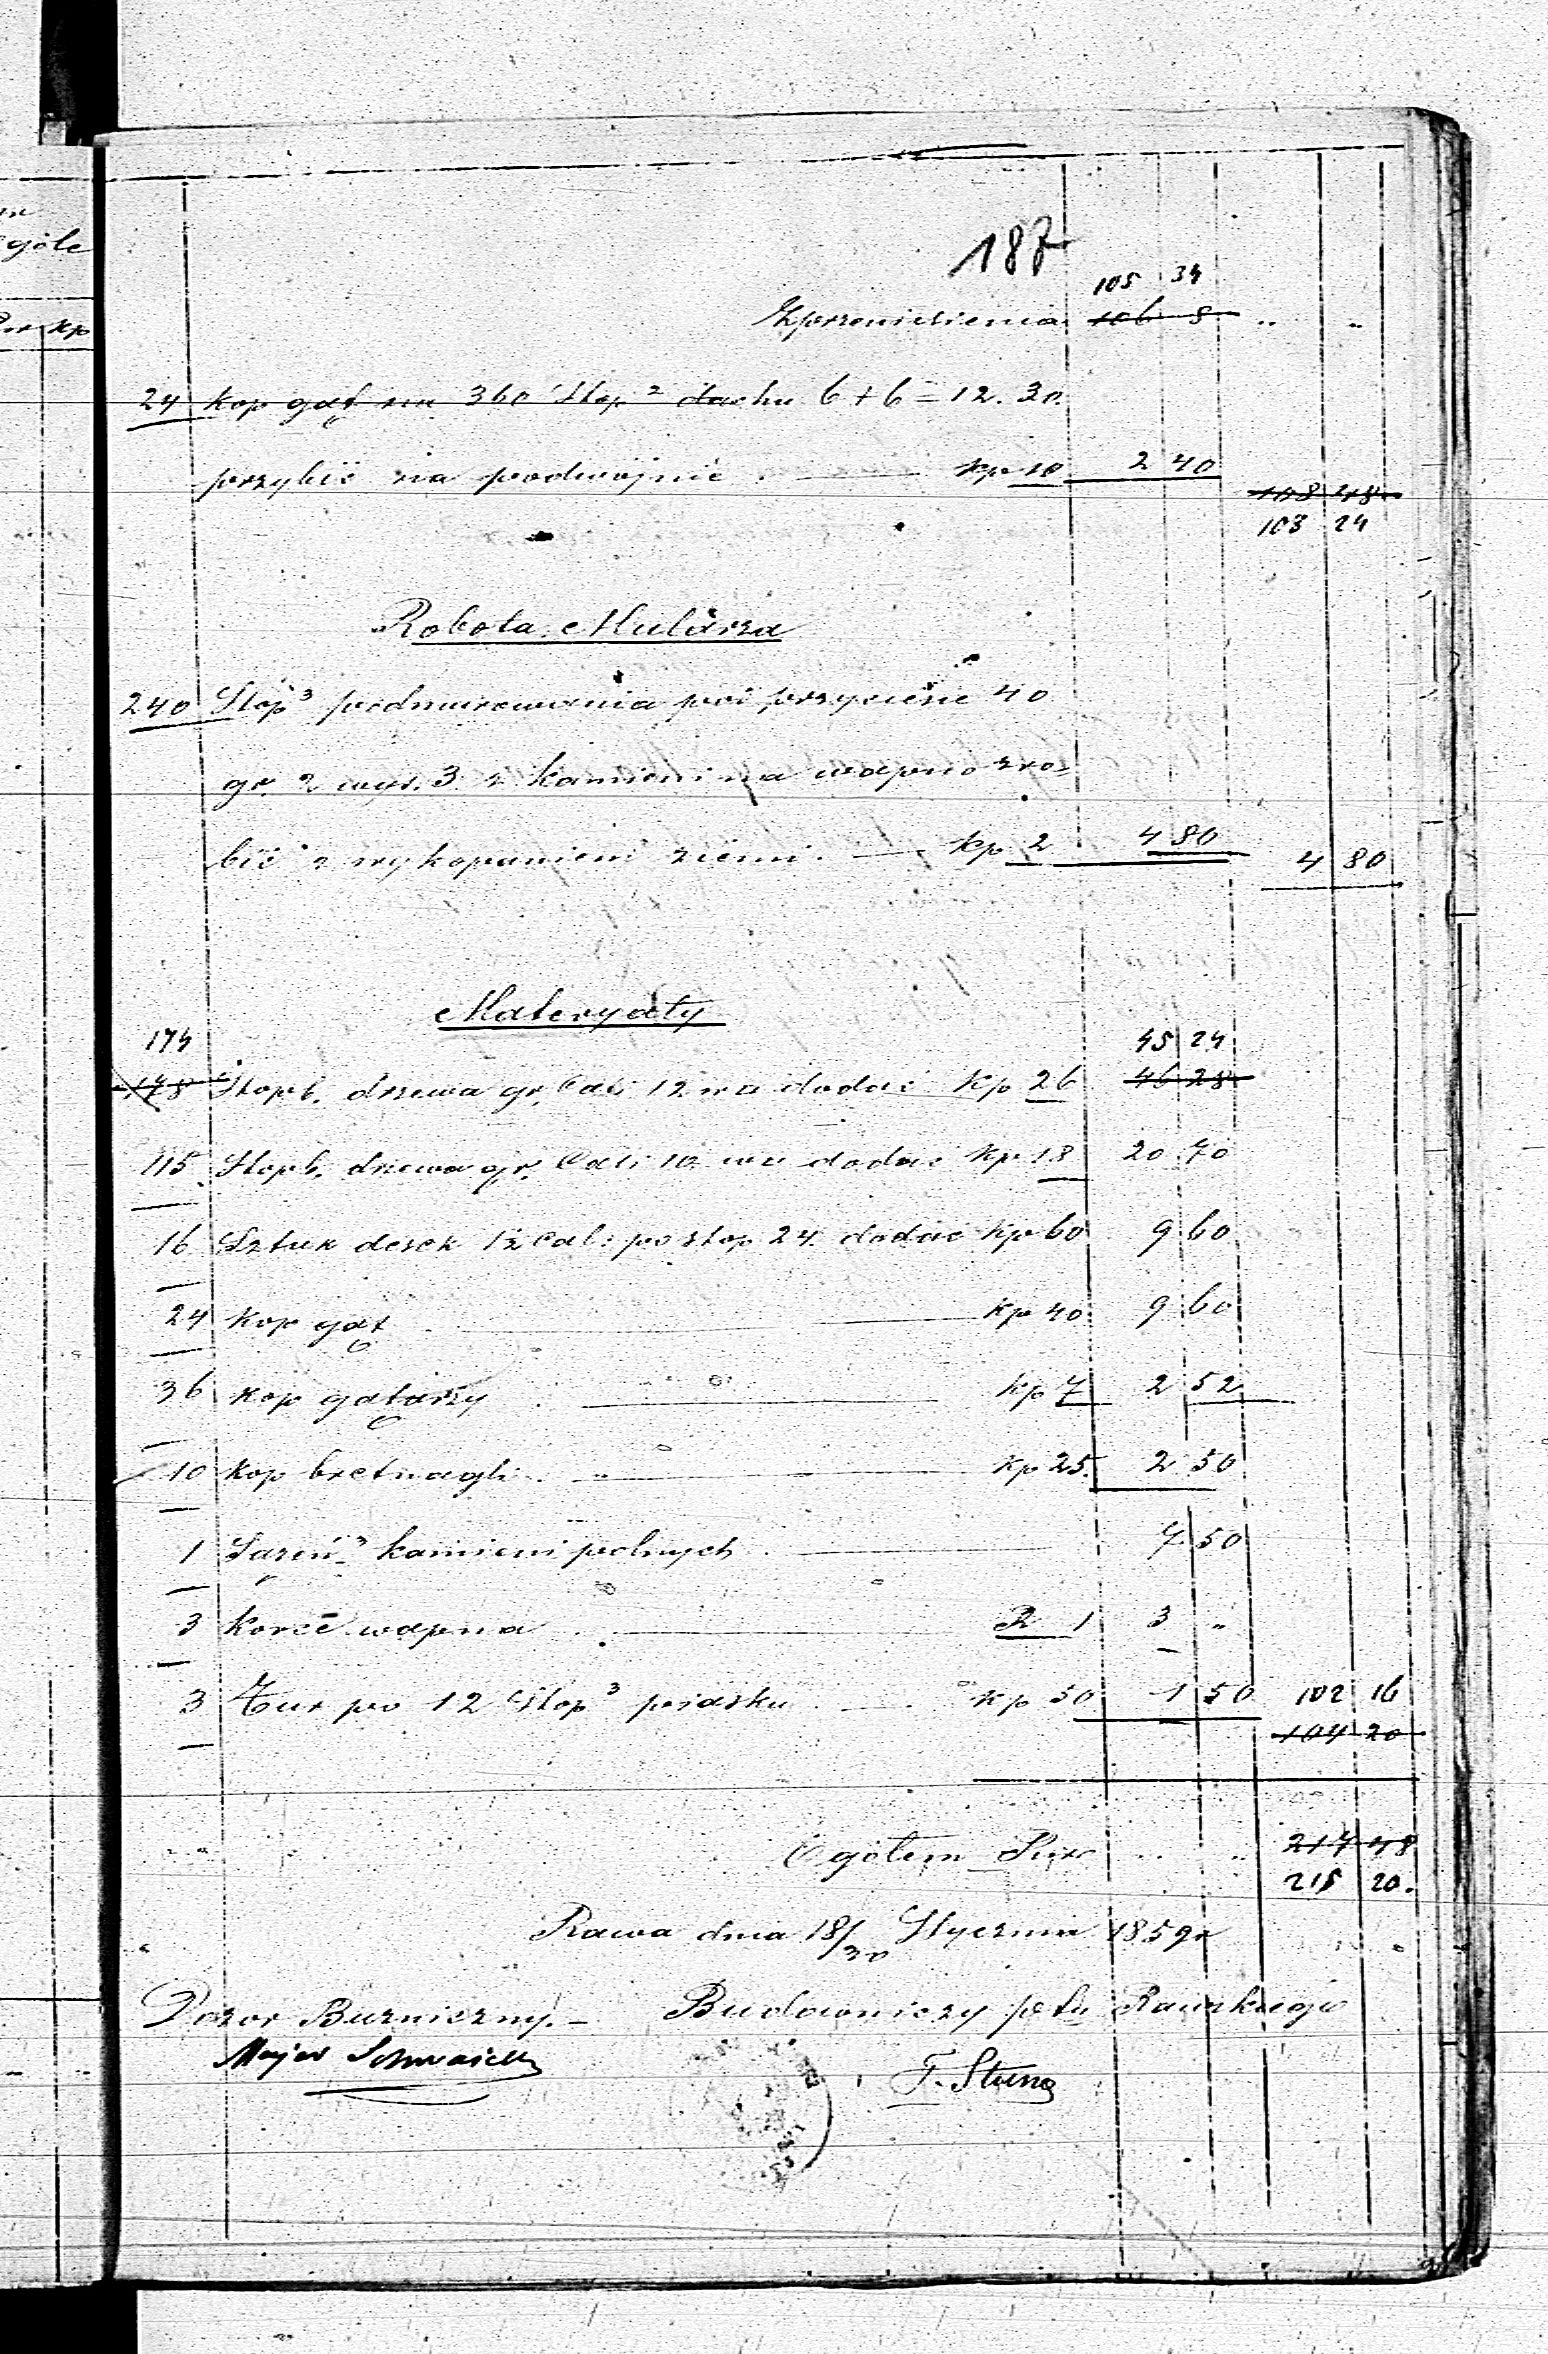 187
105 34
Z przeniesienia 106 8 " "
24 kop gąt na 360 Stop² dachu 6+6=12.30.
przybić na podwójnie . — kp 10 2 40
108 48
103 24
Robota Mularza
240 Stóp³ podmurowania pod przyciesie 40
gr. 2 wys. 3 z kamieni na wapno zro=
bić z wykopaniem ziemi. — kp 2 4 80 4 80
Materyały
174 45 24
178 Stop b. drzewa gr. Cali 12 na dodać kp 26 46 28
115 Stop b. drzewa gr. Cali 10 na dodać kp 18 20 70
16 Sztuk desek 1½ Cal: po stop 24 dodać kp 60 9 60
24 kop gąt . — kp 40 9 60
36 kop gątarzy . — kp 7 2 52
10 kop bretnagli . — kp 25. 2 50
1 Sążeń³ kamieni polnych . — 7 50
3 korcē wapna . — R 1 3 "
3 Fur po 12 Stop³ piasku . — kp 50 1 50 102 16
104 20
Ogółem Rsr " " 217 48
215 20.
Rawa dnia 18/30 Stycznia 1859 r
Dozor Bużniczny. – Budowniczy ptu Rawskiego
Majer